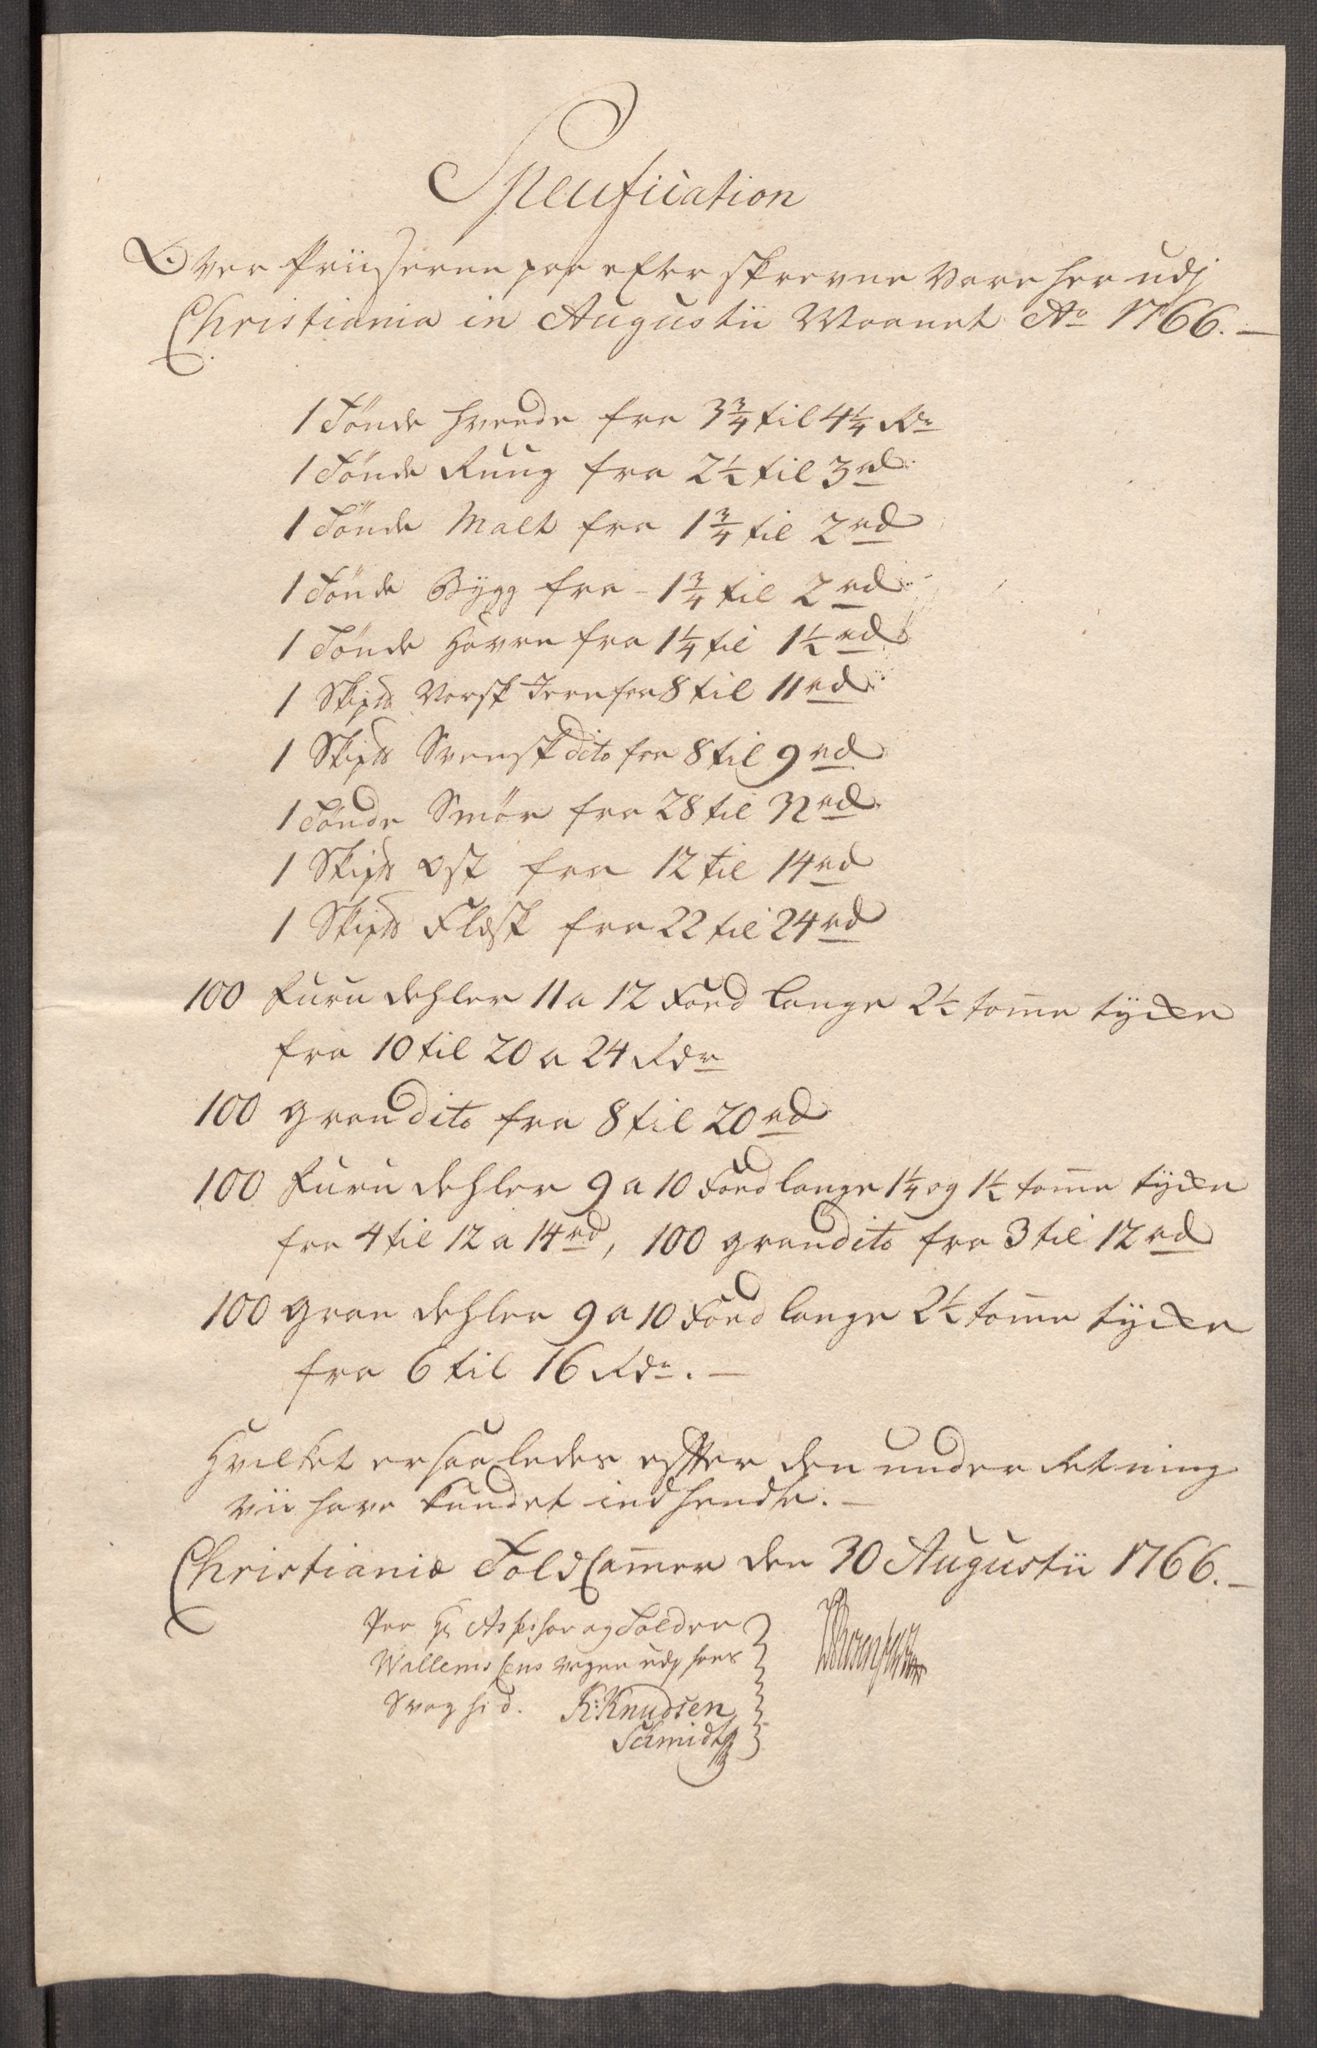 Specification
Over Priiserne paa efter skrevne Vare her udj
Christiania in Augustii Maanet Ao 1766.
1 Tönde Hveede fra 3 3/4 til 4 1/4 Rdr
1 Tönde Ruug fra 2 1/2 til 3 rd
1 Tönde Malt fra 1 3/4 til 2 rd
1 Tönde Bÿgg fra - 1 3/4 til 2 rd
1 Tönde Havre fra 1 1/4 til 1 1/2 rd
1 Skipd Norsk Jern fra 8 til 11 rd
1 Skipd Svensk dito fra 8 til 9 rd
1 Tönde Smör fra 28 til 32 rd
1 Skipd Ost fra 12 til 14 rd
1 Skipd Flæsk fra 22 til 24 rd
100 Furu dehler 11 a 12 Foed lange 2 1/2 tome tÿcke
fra 10 til 20 a 24 Rdr
100 gran dito fra 8 til 20 rd
100 Furu dehler 9 a 10 Foed lange 1 1/4 og 1 1/2 tome tÿcke
fra 4 til 12 a 14 rd, 100 gran dito fra 3 til 12 rd
100 gran dehler 9 a 10 Foed lange 2 1/2 tome tÿcke
fra 6 til 16 Rdr. —
Hvilket er saaledes efter den underretning
vii have kundet indhendte. —
Christianiæ Told Camer den 30 Augustii 1766. —
Paa Hr Assessor og Tolder
Wallemsens vegne udj hans
Svaghed. K: Knudsen
Schmidt